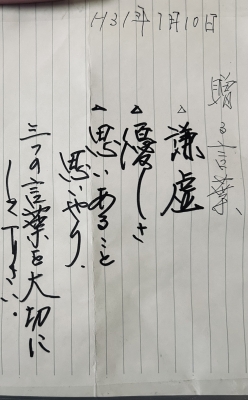 H31年7月10日
贈る言葉、
△謙虚
△優しさ
△思いあること
思いやり、
三つの言葉を大切に
して下さい。